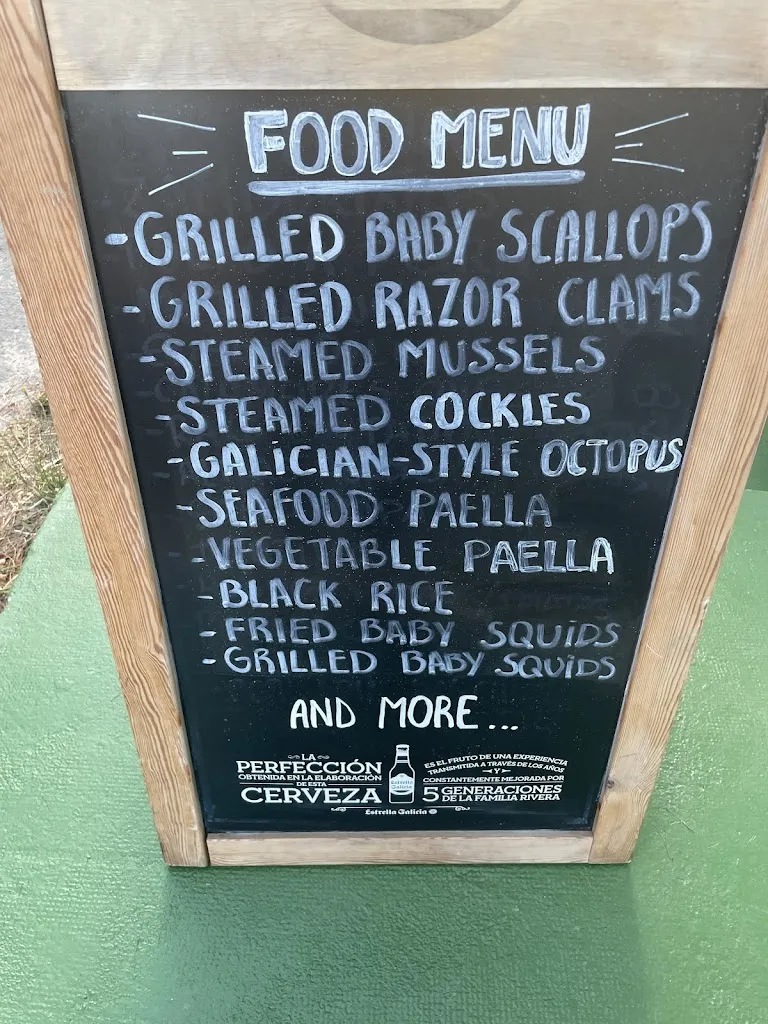 FOOD MENU
-GRILLED BABY SCALLOPS
-GRILLED RAZOR CLAMS
-STEAMED MUSSELS
-STEAMED COCKLES
-GALiCiAN-STYLE OCTOPUS
-SEAFOOD PAELLA
-VEGETABLE PAELLA
-BLACK RICE
-FRIED BABY SQUiDS
-GRILLED BABY SQUiDS
AND MORE...
LA
PERFECCIÓN
OBTENIDA EN LA ELABORACIÓN
DE ESTA
CERVEZA
Estrella
Galicia
ES EL FRUTO DE UNA EXPERIENCIA
TRANSMITIDA A TRAVÉS DE LOS AÑOS
Y
CONSTANTEMENTE MEJORADA POR
5 GENERACIONES
DE LA FAMILIA RIVERA
Estrella Galicia